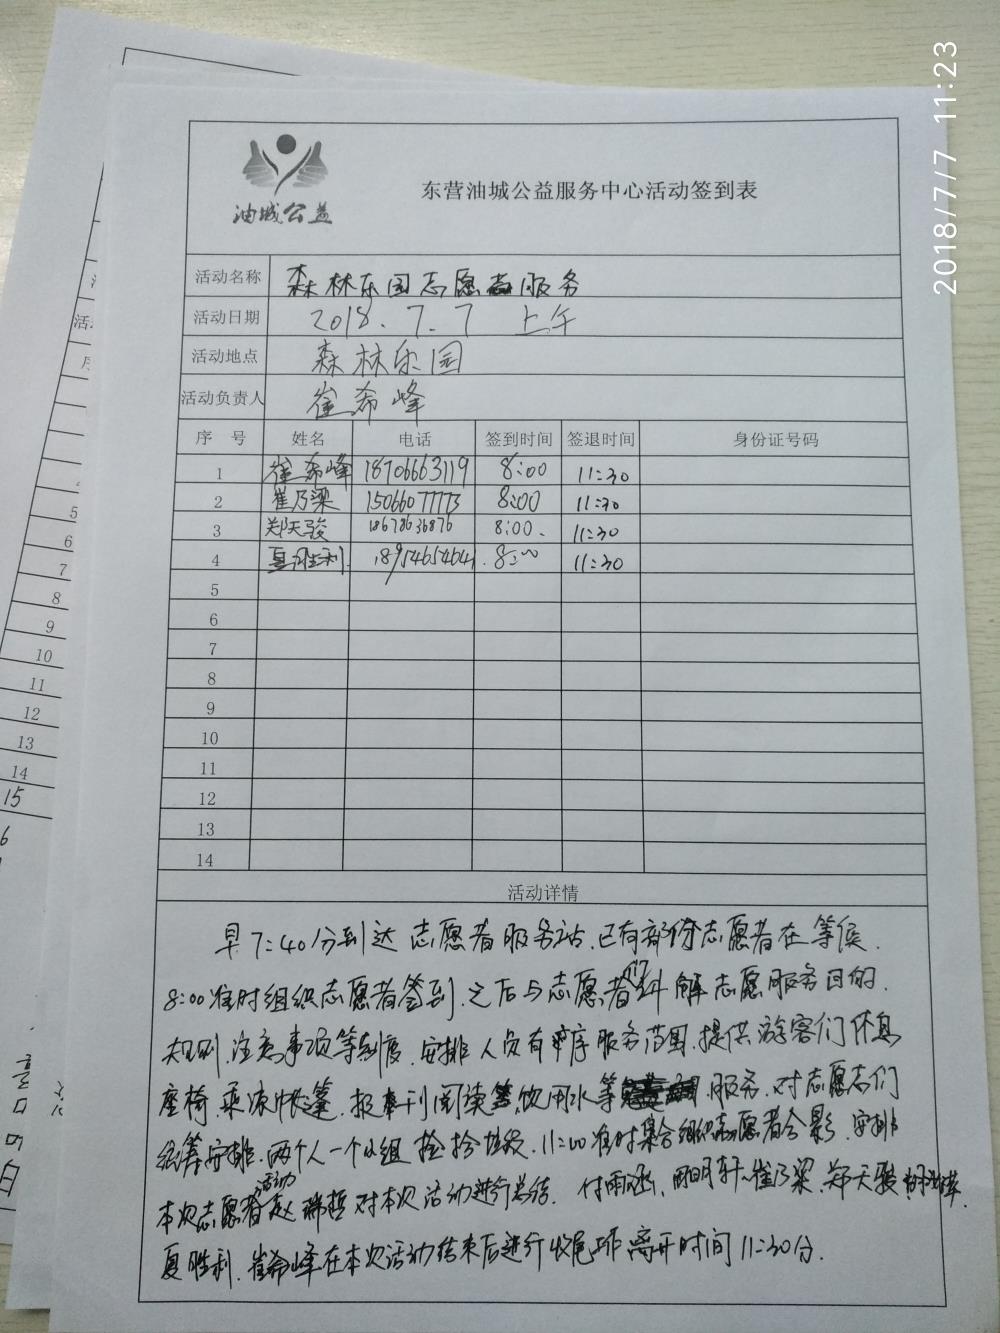 2018/7/7 11:23
油城公益
东营油城公益服务中心活动签到表
活动名称 森林乐园志愿者服务
活动日期 2018.7.7 上午
活动地点 森林乐园
活动负责人 崔希峰
序号 姓名 电话 签到时间 签退时间 身份证号码
1 崔希峰 18706663119 8:00 11:30
2 崔乃梁 15066077773 8:00 11:30
3 郑天骏 18678636876 8:00. 11:30
4 夏胜利 18954654641 8:00 11:30
5
6
7
8
9
10
11
12
13
14
活动详情
早7:40分到达志愿者服务站.已有部份志愿者在等侯.
8:00准时组织志愿者签到.之后与志愿者们讲解志愿服务目的.
规则.注意事项等制度.安排人员有序服务范围.提供游客们休息
座椅 乘凉帐篷.报事刊阅读 饮用水等 服务.对志愿志们
统筹安排.两个人一个小组 捡拾垃圾.11:00准时集合组织志愿者合影.安排
本次志愿者活动赵瑞哲对本次活动进行总结.付雨涵、周明轩、崔乃梁.郑天骏
夏胜利.崔希峰在本次活动结束后进行收尾工作 离开时间11:30分.
5
6
7
8
9
10
11
12
13
14
15